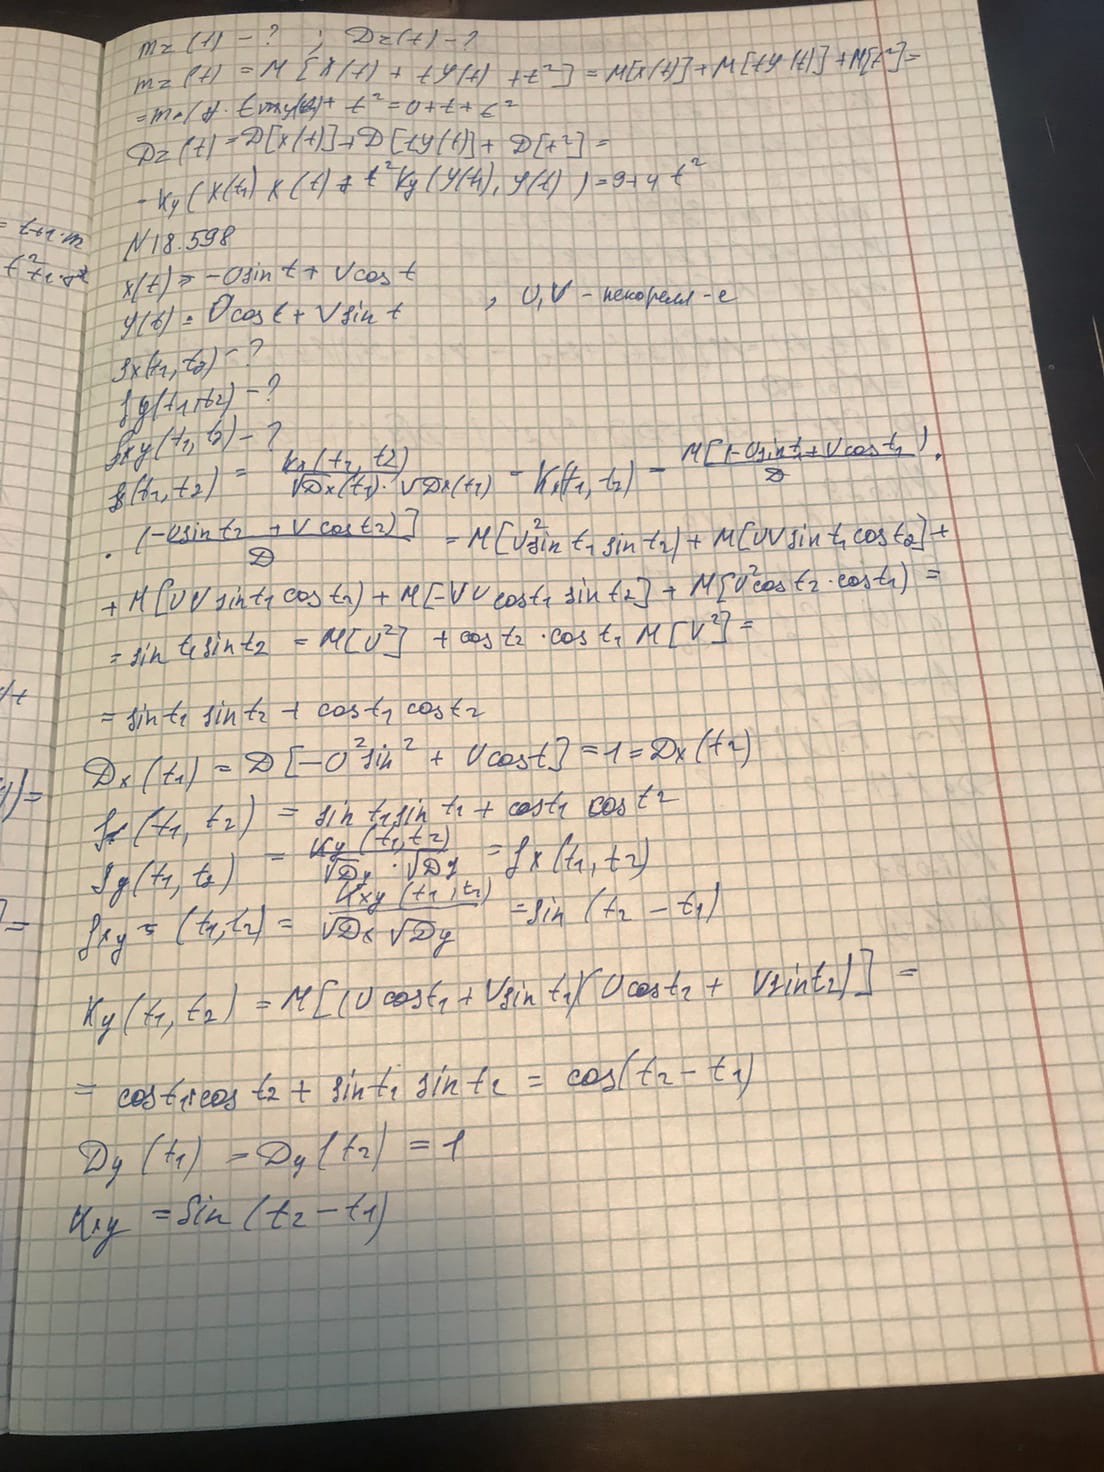 mz(t) - ? ; Dz(t) - ?
mz(t) = M[X(t) + tY(t) + t²] = M[X(t)] + M[tY(t)] + M[t²] =
t² = 0 + t + t²
Dz(t) = D[X(t)] + D[tY(t)] + D[t²] =
- Ky(X(t₁) X(t) + t² Ky(Y(t₁), Y(t)) = 9 + 4t²
N18.598
x(t) = -Usin t + Vcos t
y(t) = Ucos t + Vsin t , U, V - некоррел-е
ρx(t₁, t₂) - ?
ρy(t₁, t₂) - ?
ρxy(t₁, t₂) - ?
ρx(t₁, t₂) = Kx(t₁, t₂) / √Dx(t₁) · √Dx(t₁) - Kx(t₁, t₂) - M[(-Usin t₁ + Vcos t₁) / D ·
· (-Usin t₂ + Vcos t₂)] / D = M[U² sin t₁ sin t₂) + M[UV sin t₁ cos t₂] +
+ M[UV sin t₁ cos t₂) + M[-VU cos t₁ sin t₂] + M[V² cos t₂ · cos t₁) =
= sin t₁ sin t₂ = M[U²] + cos t₂ · cos t₁ M[V²] =
= sin t₁ sin t₂ + cos t₁ cos t₂
Dx(t₁) = D[-U² sin² + Vcos t] = 1 = Dx(t₂)
ρx(t₁, t₂) = sin t₁ sin t₁ + cos t₁ cos t₂
ρy(t₁, t₂) = Ky(t₁, t₂) / √Dy · √Dy = ρx(t₁, t₂)
ρxy = (t₁, t₂) = Kxy(t₁, t₂) / √Dx √Dy = sin(t₂ - t₁)
Ky(t₁, t₂) = M[(Ucos t₁ + Vsin t₁)(Ucos t₂ + Vsin t₂)] =
= cos t₁ cos t₂ + sin t₁ sin t₂ = cos(t₂ - t₁)
Dy(t₁) = Dy(t₂) = 1
Kxy = sin(t₂ - t₁)